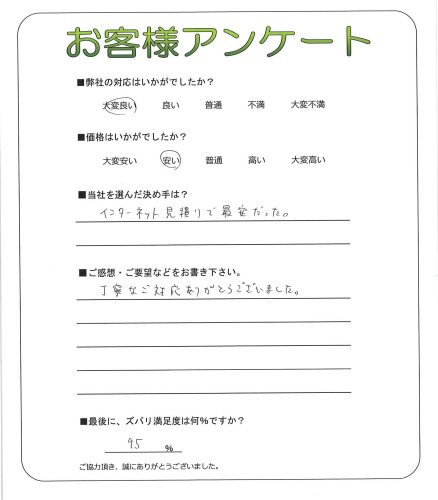 お客様アンケート
■弊社の対応はいかがでしたか？
大変良い 良い 普通 不満 大変不満
■価格はいかがでしたか？
大変安い 安い 普通 高い 大変高い
■当社を選んだ決め手は？
インターネット見積りで最安だった。
■ご感想・ご要望などをお書き下さい。
丁寧なご対応ありがとうございました。
■最後に、ズバリ満足度は何%ですか？
95 %
ご協力頂き、誠にありがとうございました。